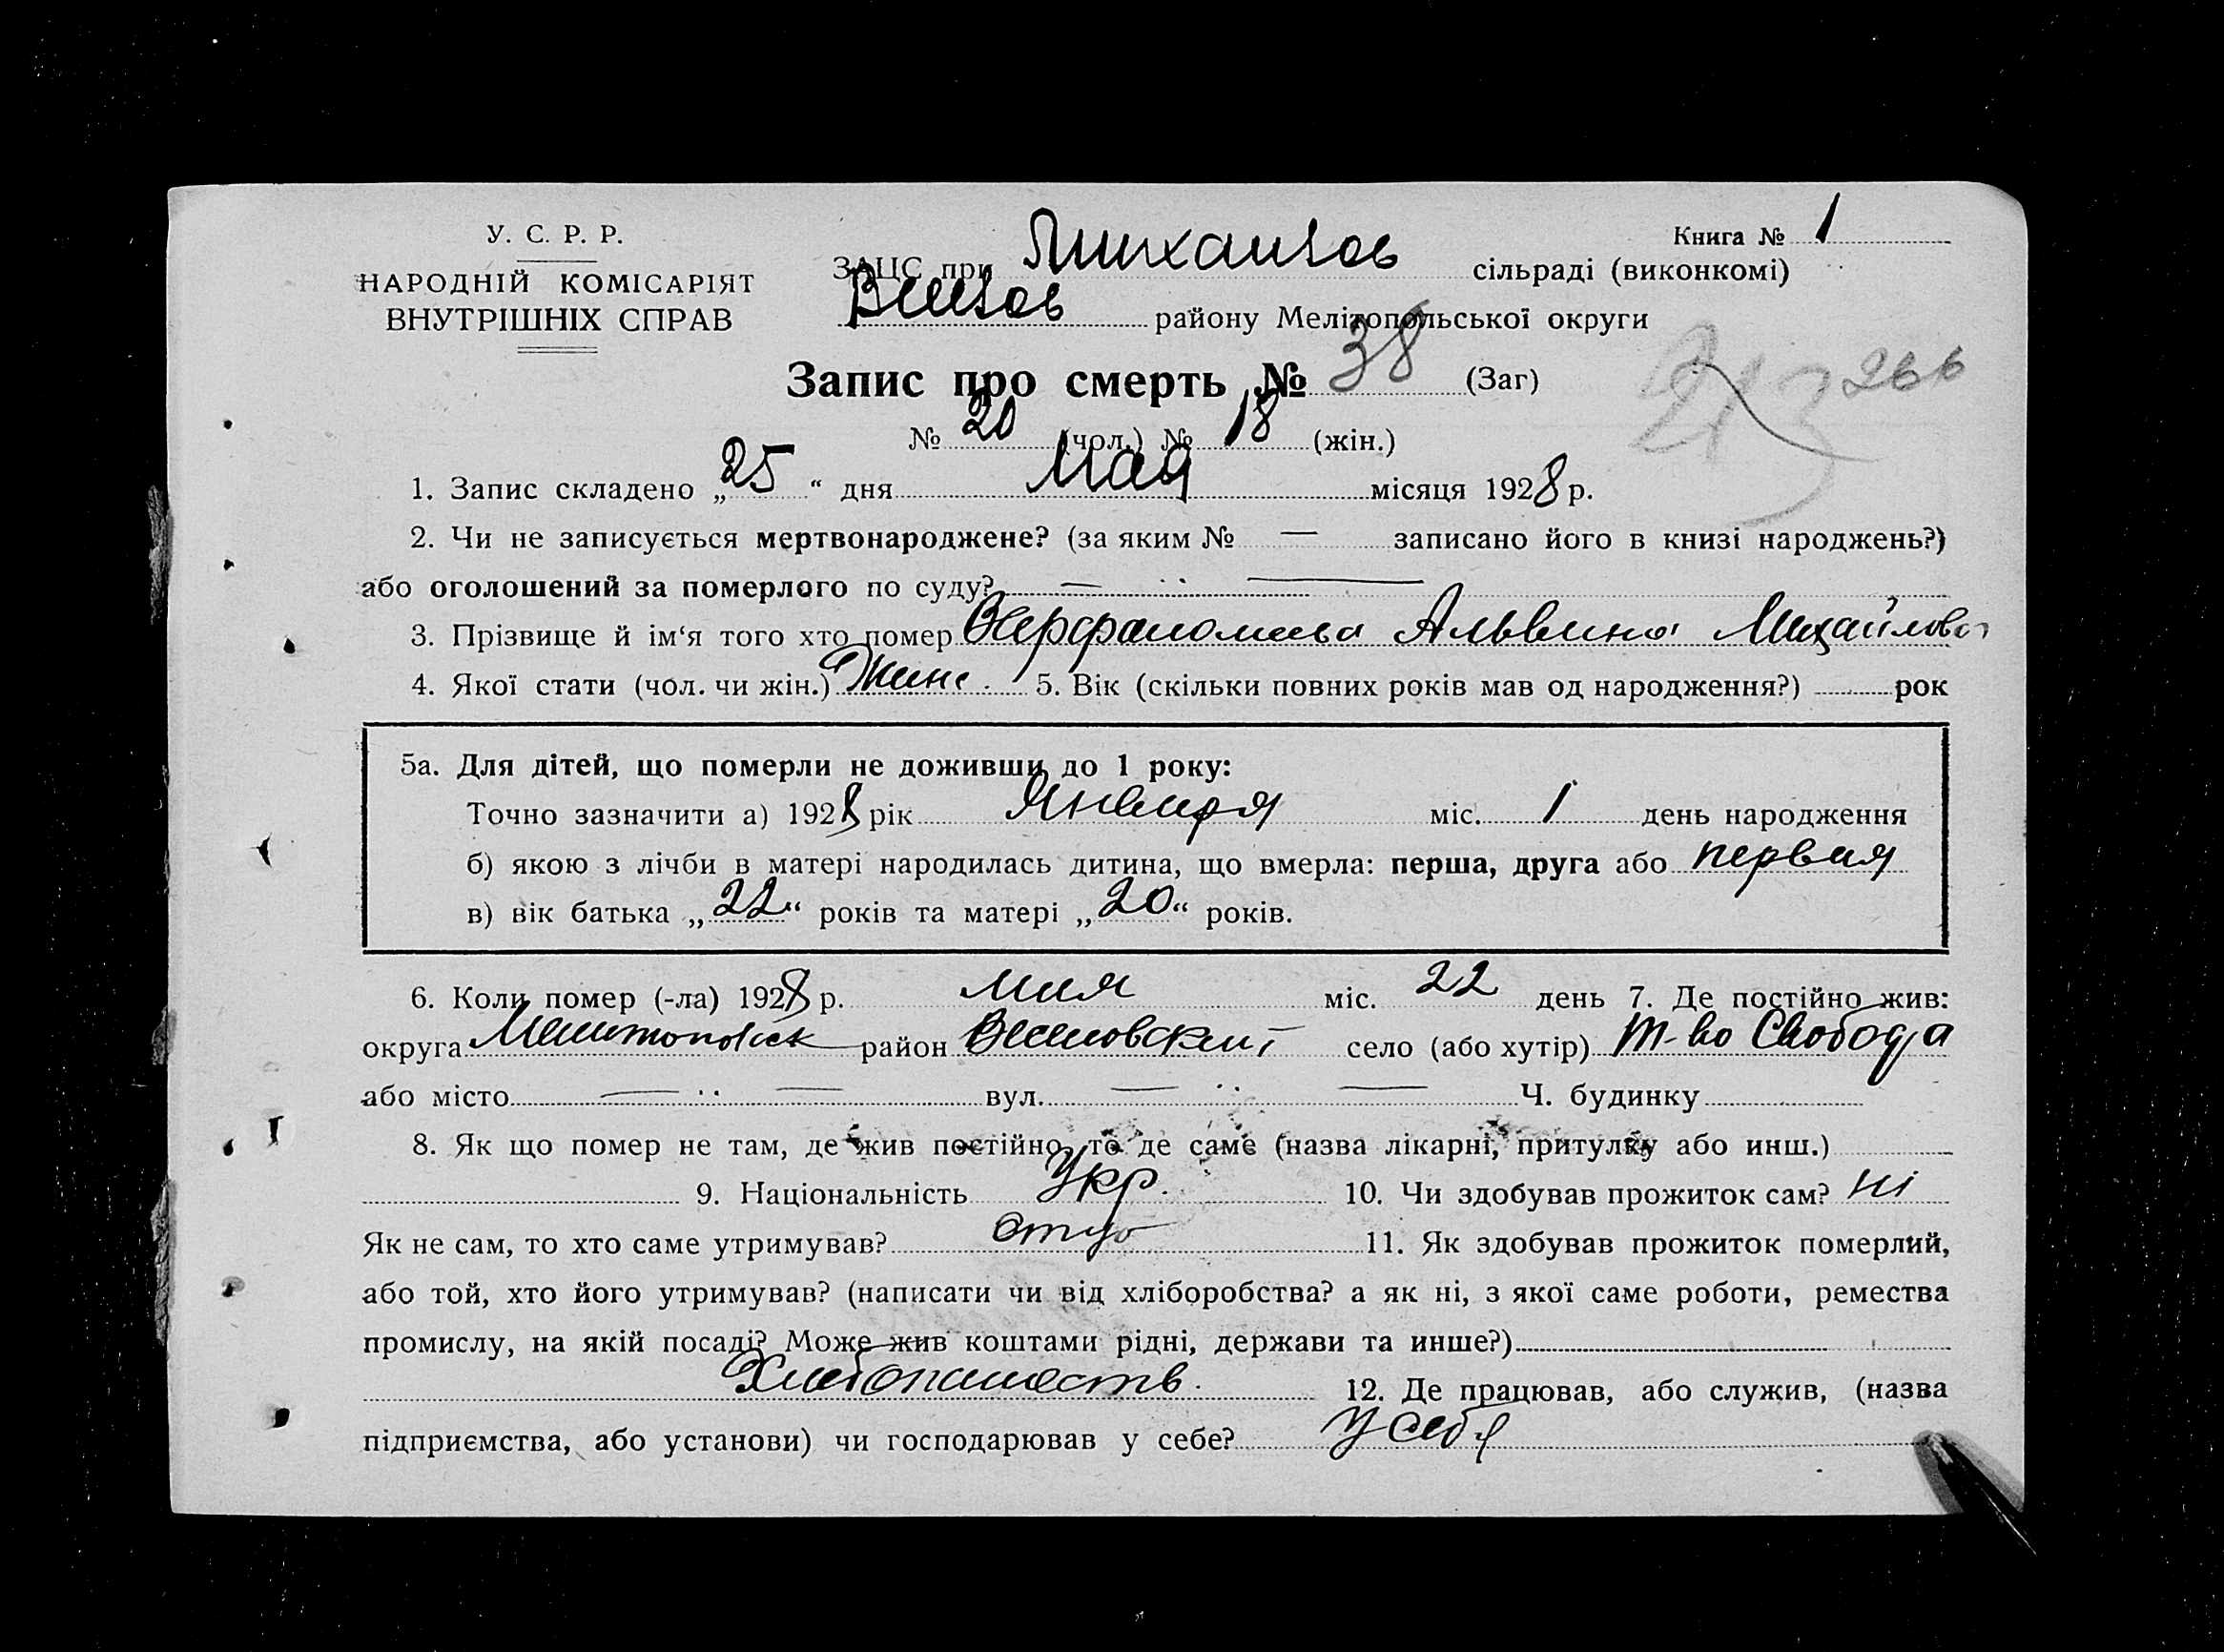 У. С. Р. Р.
НАРОДНІЙ КОМІСАРІЯТ
ВНУТРІШНІХ СПРАВ
Книга № 1
ЗАЦС при сільраді (виконкомі)
району Мелітопольської округи
Запис про смерть № 38 (Заг)
266
213
№ 20 (чол.) № 18 (жін.)
1. Запис складено „25“ дня Мая місяця 1928 р.
2. Чи не записується мертвонароджене? (за яким № — записано його в книзі народжень?)
або оголошений за померлого по суду? — ·· —
3. Прізвище й ім‘я того хто помер Альвина Михайлова
4. Якої стати (чол. чи жін.) Женс. 5. Вік (скільки повних років мав од народження?) рок
5а. Для дітей, що померли не доживши до 1 року:
Точно зазначити а) 1928 рік Января міс. 1 день народження
б) якою з лічби в матері народилась дитина, що вмерла: перша, друга або первая
в) вік батька „22“ років та матері „20“ років.
6. Коли помер (-ла) 1928 р. мая міс. 22 день 7. Де постійно жив:
округа Мелитопольск район Веселовский село (або хутір) т-во Свобода
або місто — ·· — вул. — ·· — Ч. будинку
8. Як що помер не там, де жив постійно, то де саме (назва лікарні, притулку або инш.)
9. Національність Укр. 10. Чи здобував прожиток сам? ні
Як не сам, то хто саме утримував? отец 11. Як здобував прожиток померлий,
або той, хто його утримував? (написати чи від хліборобства? а як ні, з якої саме роботи, ремества
промислу, на якій посаді? Може жив коштами рідні, держави та инше?)
Хлебопашеств. 12. Де працював, або служив, (назва
підприємства, або установи) чи господарював у себе? у себя